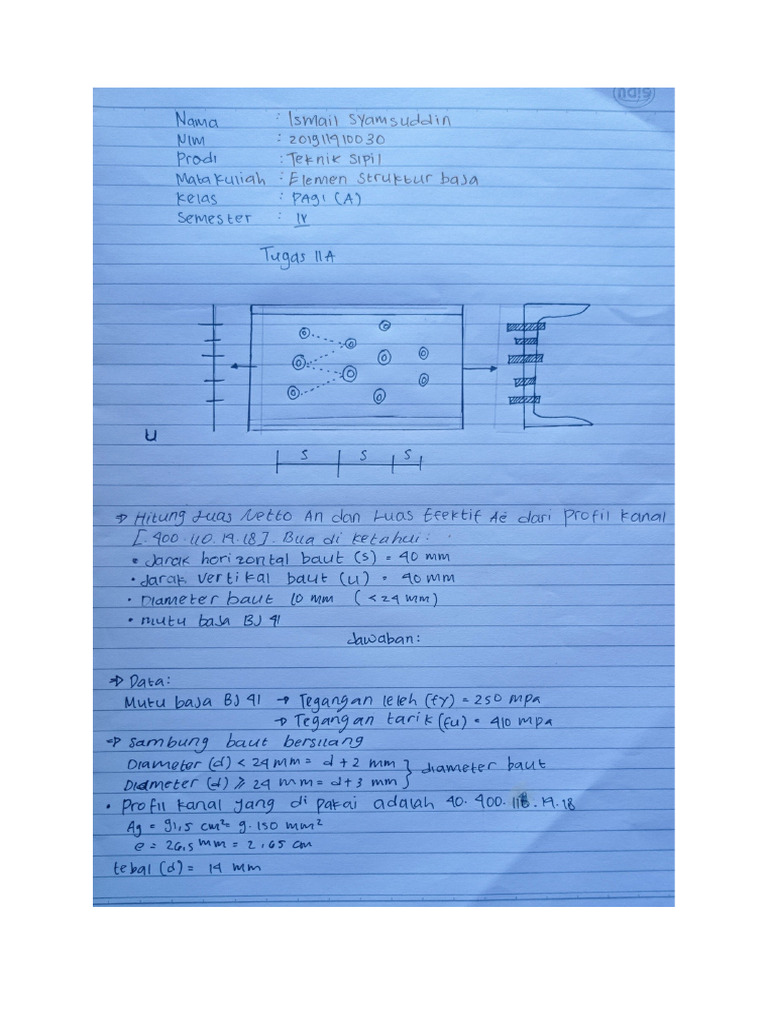 SIDU
Nama : Ismail Syamsuddin
NIM : 201911910030
Prodi : Teknik Sipil
Mata Kuliah : Elemen Struktur baja
Kelas : PAgi (A)
Semester : IV
Tugas IIA
U
S S S
⇒ Hitung Luas Netto An dan Luas Efektif Ae dari Profil Kanal
[. 400. 110. 14. 18]. Bua di ketahui:
• Jarak horizontal baut (s) = 40 mm
• Jarak vertikal baut (u) = 40 mm
• Diameter baut 10 mm (< 24 mm)
• mutu baja BJ 41
Jawaban:
⇒ Data:
Mutu baja BJ 41 → Tegangan leleh (fy) = 250 mpa
→ Tegangan tarik (fu) = 410 mpa
⇒ Sambung baut bersilang
Diameter (d) < 24 mm = d + 2 mm } diameter baut
Diameter (d) ⩾ 24 mm = d + 3 mm
• Profil kanal yang di pakai adalah 40. 400. . 14. 18
Ag = 91,5 cm² = 9.150 mm²
e = 26,5 mm = 2,65 cm
tebal (d) = 14 mm